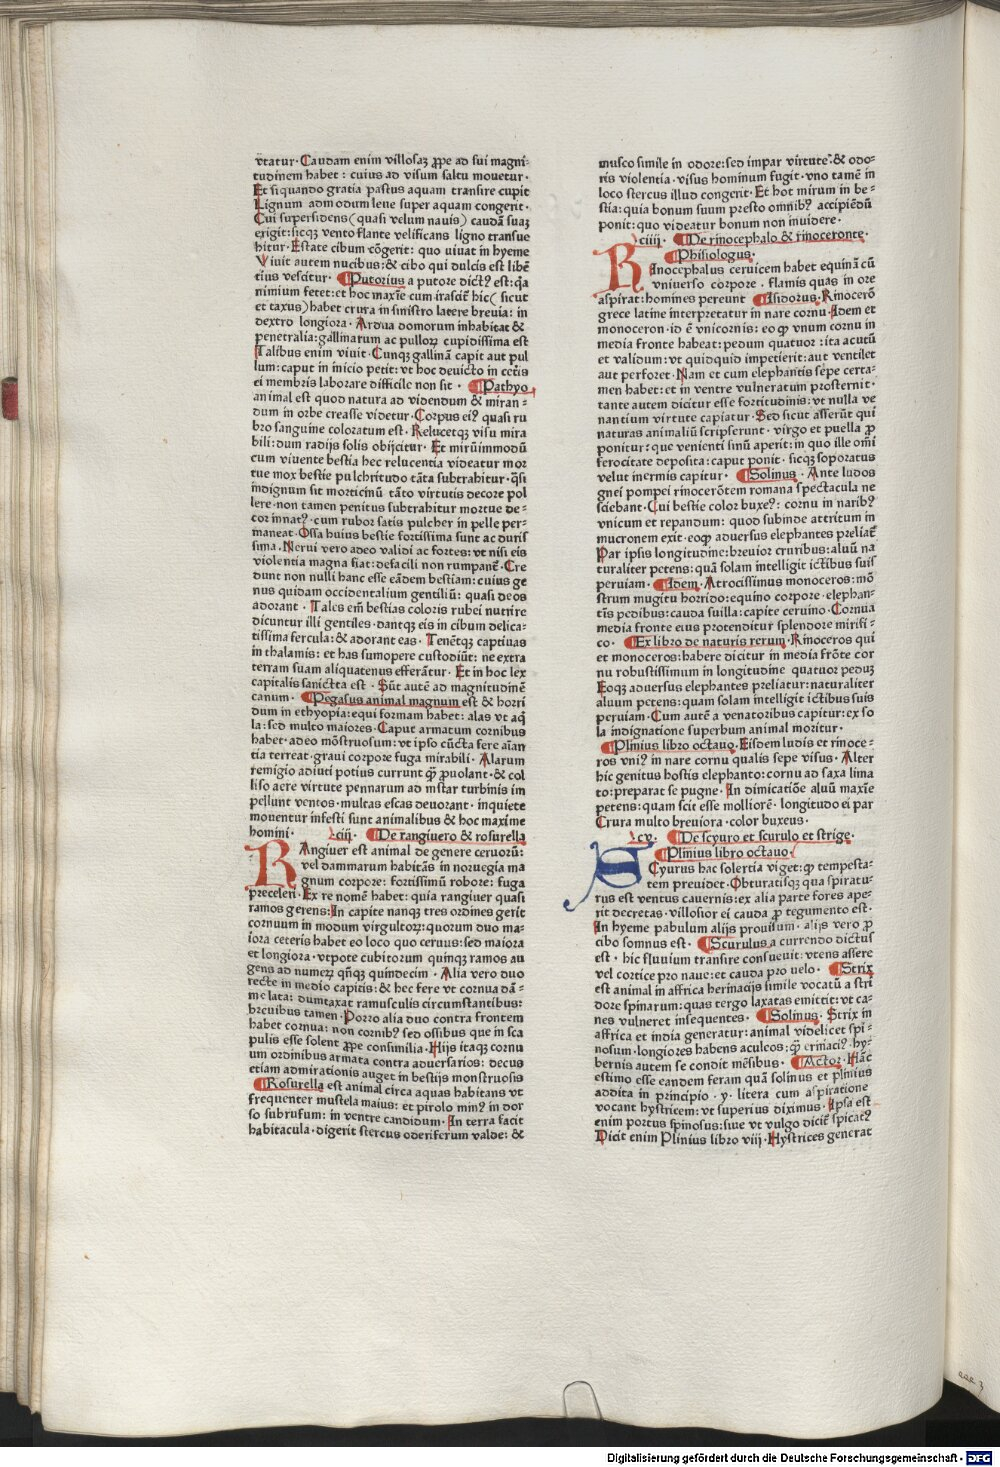 vtatur· Caudam enim villosaȝ ꝓpe ad sui magni-
tudinem habet : cuius ad visum saltu mouetur·
Et si quando gratia pastus aquam transire cupit
Lignum admodum leue super aquam congerit·
Cui supersidens(quasi velum nauis) caudā suaȝ
erigit:sicqȝ vento flante velificans ligno transue
hitur· Estate cibum cōgerit: quo viuat in hyeme
Viuit autem nucibus:& cibo qui dulcis est libē
tius vescitur· Putorius a putore dictꝰ est:qa
nimium fetet:et hoc maxīe cum irascit̄ hic( sicut
et taxus)habet crura in sinistro latere breuia: in
dextro longiora· Ardua domorum inhabitat &
penetralia:gallinarum ac pulloꝝ cupidissima est
Talibus enim viuit· Cunqȝ gallinā capit aut pul
lum:caput in inicio petit:vt hoc deuicto in cetis
ei membris laborare difficile non sit · Pathyo
animal est quod natura ad videndum & miran-
dum in orbe creasse videtur· Corpus eiꝰ quasi ru
bro sanguine coloratum est· Relucetqȝ visu mira
bili:dum radijs solis obijcitur· Et mirūimmodū
cum viuente bestia hec relucentia videatur mor
tue mox bestie pulchritudo tāta subtrahitur·q̄si
indignum sit morticinū tāto virtutis decore pol
lere·non tamen penitus subtrahitur mortue de-
cor innatꝰ·cum rubor satis pulcher in pelle per-
maneat· Ossa huius bestie fortissima sunt ac duris
sima· Nerui vero adeo validi ac fortes: vt nisi eis
violentia magna fiat:defacili non rumpant̄· Cre
dunt non nulli hanc esse eādem bestiam:cuius ge
nus quidam occidentalium gentiliū: quasi deos
adorant · Tales em̄ bestias coloris rubei nutrire
dicuntur illi gentiles·dantqȝ eis in cibum delica-
tissima fercula:& adorant eas· Tenētqȝ captiuas
in thalamis: et has sumopere custodiūt: ne extra
terram suam aliquatenus efferātur· Et in hoc lex
capitalis sanictta est · Sūt autē ad magnitudinē
canum · Pegasus animal magnum est & horri
dum in ethyopia:equi formam habet: alas vt aq̄
la:sed multo maiores· Caput armatum cornibus
habet·adeo mōstruosum:vt ipso cūcta fere aīan
tia terreat·graui corpore fuga mirabili· Alarum
remigio adiuti potius currunt qȝ ꝓuolant·& col
liso aere virtute pennarum ad instar turbinis im
pellunt ventos·multas escas deuorant· inquiete
mouentur infesti sunt animalibus & hoc maxime
homini· Lciij· De rangiuero & rosurella
RAngiuer est animal de genere ceruorū:
vel dammarum habitās in noruegia ma
gnum corpore: fortissimū robore: fuga
preceleri· Ex re nomē habet: quia rangiuer quasi
ramos gerens:In capite nanqȝ tres ordines gerit
cornuum in modum virgultoꝝ:quorum duo ma-
iora ceteris habet eo loco quo ceruus:sed maiora
et longiora·vtpote cubitorum quinqȝ ramos au
gens ad numeꝝ q̄nqȝ quindecim · Alia vero duo
recte in medio capitis:& hec fere vt cornua dā-
me lata: dumtaxat ramusculis circumstantibus:
breuibus tamen· Porro alia duo contra frontem
habet cornua: non cornibꝰ sed ossibus que in sca
pulis esse solent ꝓpe consimilia·Hijs itaqȝ cornu
um ordinibus armata contra aduersarios: decus
etiam admirationis auget in bestijs monstruosis
Rosurella est animal circa aquas habitans vt
frequenter mustela maius: et pirolo minꝰ in dor
so subrufum: in ventre candidum· In terra facit
habitacula·digerit stercus oderiferum valde: &
musco simile in odore:sed impar virtute·& odo-
ris violentia· visus hominum fugit·vno tamē in
loco stercus illud congerit· Et hot mirum in be-
stia:quia bonum suum presto omnibꝰ accipiēdū
ponit:quo videatur bonum non inuidere·
Lciiij· De rinocephalo & rinoceronte·
Phisiologus·
RInocephalus ceruicem habet equinā cū
vniuerso corpore · flamis quas in ore
aspirat:homines pereunt Isidorus· Rinocerō
grece latine interpretatur in nare cornu· Idem et
monoceron·id ē vnicornis: eo qȝ vnum cornu in
media fronte habeat: pedum quatuor :ita acutū
et validum:vt quidquid impetierit:aut ventilet
aut perforet·Nam et cum elephantis sepe certa-
men habet:et in ventre vulneratum prosternit·
tante autem dicitur esse fortitudinis:vt nulla ve
nantium virtute capiatur· Sed sicut asserūt qui
naturas animaliū scripserunt· virgo et puella ꝓ
ponitur:que venienti sinū aperit:in quo ille om̄i
ferocitate deposita:caput ponit· sicqȝ soporatus
velut inermis capitur· Solinus · Ante ludos
gnei pompei rinocerōtem romana spectacula ne
sciebant·Cui bestie color buxeꝰ: cornu in naribꝰ
vnicum et repandum: quod subinde attritum in
mucronem exit·eoqȝ aduersus elephantes preliat̄
Par ipsis longitudine:breuior cruribus:aluū na
turaliter petens:quā solam intelligit ictibus suis
peruiam· Idem· Atrocissimus monoceros:mō
strum mugitu horrido:equino corpore·elephan-
tīs pedibus:cauda suilla:capite ceruino·Cornua
media fronte eius protenditur splendore mirifi-
co· Ex libro de naturis rerum· Rinoceros qui
et monoceros:habere dicitur in media frōte cor
nu robustissimum in longitudine quatuor peduȝ
Eoqȝ aduersus elephantes preliatur:naturaliter
aluum petens:quam solam intelligit ictibus suis
peruiam· Cum autē a venatoribus capitur:ex so
la indignatione superbum animal moritur·
Plinius libro octauo· Eisdem ludis et rinoce-
ros vniꝰ in nare cornu qualis sepe visus· Alter
hic genitus hostis elephanto:cornu ad saxa lima
to:preparat se pugne· In dimicatiōe aluū maxīe
petens:quam scit esse molliorē· longitudo ei par
Crura multo breuiora·color buxeus·
Lcv· De scyuro et scurulo et strige·
Plinius libro octauo·
SCyurus hac solertia viget:qȝ tempesta-
tem preuidet·Obturatisqȝ qua spiratu-
rus est ventus cauernis:ex alia parte fores ape-
rit decretas·villosior ei cauda ꝓ tegumento est·
In hyeme pabulum alijs prouisum·alijs vero ꝓ
cibo somnus est· Scurulus a currendo dictus
est· hic fluuium transire consueuit:vtens assere
vel cortice pro naue:et cauda pro velo· Strix
est animal in affrica herinacijs simile vocatū a stri
dore spinarum:quas tergo laxatas emittit:vt ca-
nes vulneret insequentes· Solinus· Strix in
affrica et india generatur:animal videlicet spi-
nosum·longiores habens aculeos:qȝ erinaciꝰ·hy-
bernis autem se condit mēsibus· Actor· Hāc
estimo esse eandem feram quā solinus et plinius
addita in principio · y· litera cum aspiratione
vocant hystricem:vt superius diximus· Ipsa est
enim portus spinosus:siue vt vulgo dicit̄ spicatꝰ
Dicit enim Plinius libro viij· Hystrices generat
eee 3
Digitalisierung gefördert durch die Deutsche Forschungsgemeinschaft · DFG